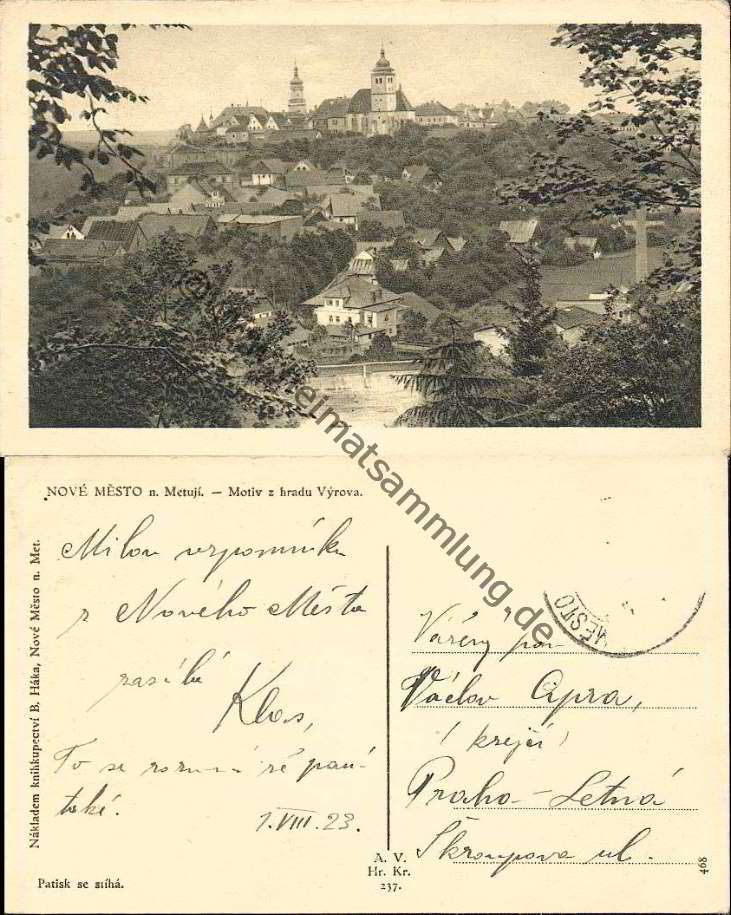 © heimatsammlung.de
NOVÉ MĚSTO n. Metují. — Motiv z hradu Výrova.
Nákladem knihkupectví B. Háka, Nové Město n. Met.
Milou vzpomínku
z Nového Města
zasílá
Klos,
To se rozumí že paní
také.
1.VIII.23.
MĚSTO
Vážený pan
Václav Cipra,
(krejčí)
Praha-Letná
Škroupova ul.
A. V.
Hr. Kr.
237.
468
Patisk se stíhá.